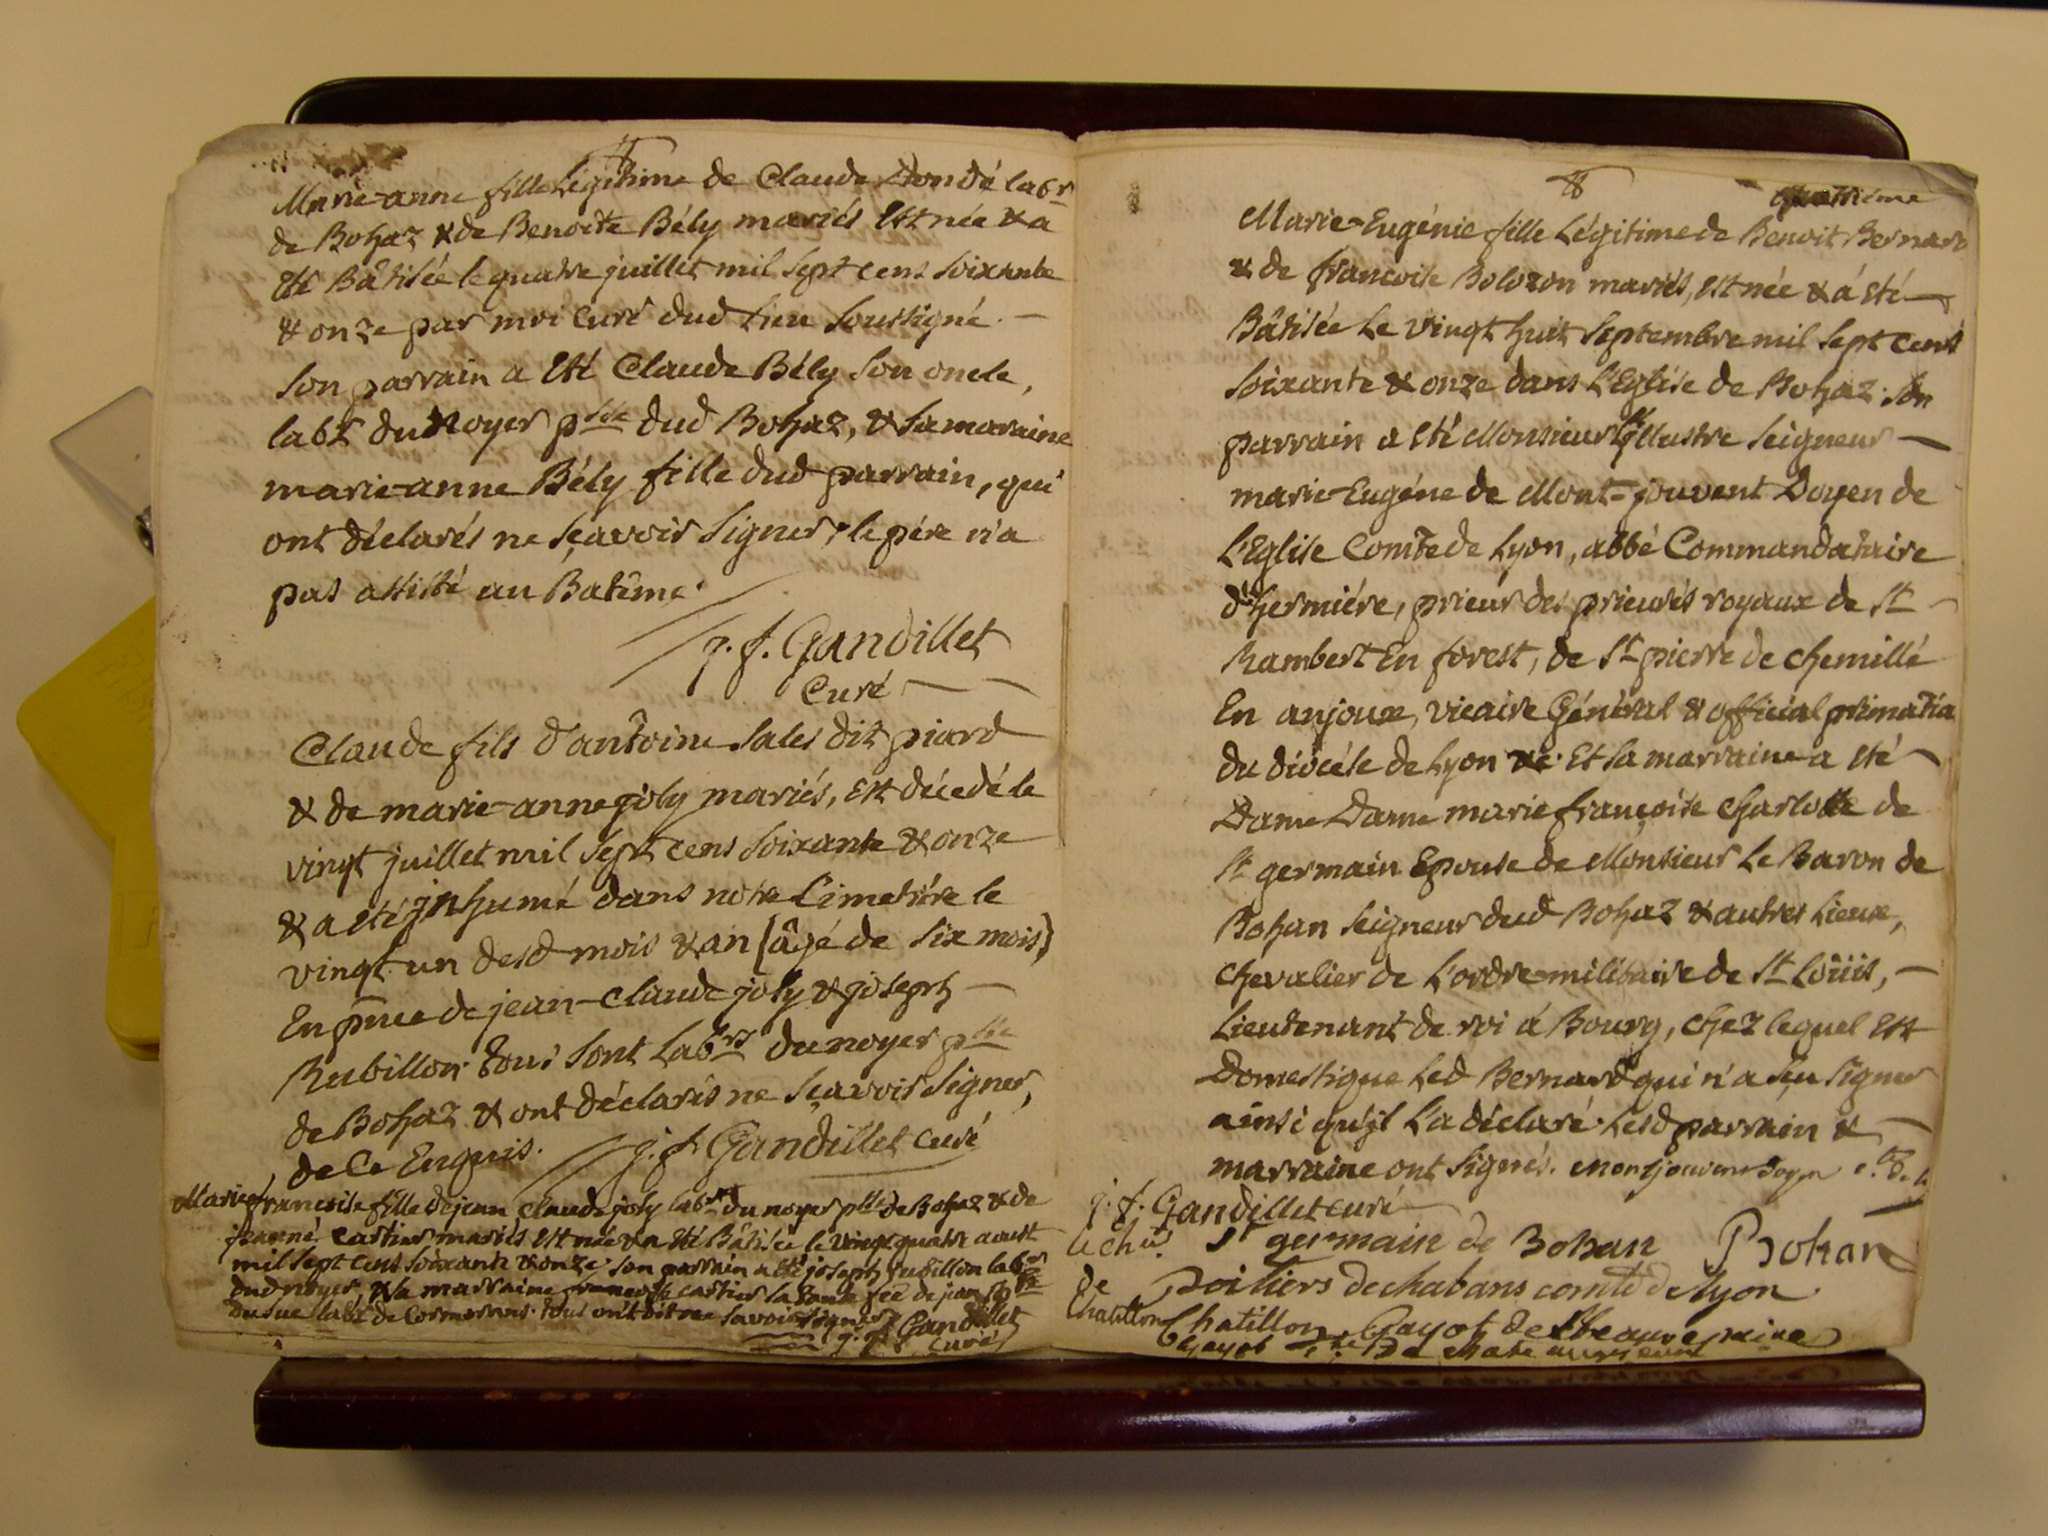 Marie-anne fille Légitime de Claude Dondé labr
de Bohaz & de Benoite Bély mariés Est née & a
Eté Bâtisée le quatre juillet mil sept cens soixante
& onze par moi curé dud Lieu soussigné. —
son parrain a Eté Claude Bély son oncle,
labr du noyer psse dud Bohaz, & sa maraine
marie-anne Bély fille dud parrain, qui
ont déclarés ne sçavoir signer, le pére n'a
pas assisté au Batême.
j. f. Gandillet
Curé
Claude fils d'antoine Sales dit piard
& de marie-anne joly mariés, Est décedé le
vingt juillet mil sept cens soixante & onze
& a eté jnhumé dans notre Cimetière le
vingt-un desd mois & an (âgé de six mois)
En pnce de jean-Claude joly & joseph —
Rubillon. tous sont Labrs du noyer psse
de Bohaz & ont déclarés ne sçavoir signer,
de ce Enquis. j. f. Gandillet curé
Marie francoise fille de jean Claude joly labr du noyer psse de Bohaz & de
jeanne Cartier mariés Est née & a Eté Bâtisée le vingt quatre aoust
mil sept cens soixante & onze. son parrain a Eté joseph Rubillon labr
dud noyer, & la marraine francoise cartier fe de jean
labr de Cormoran. tous ont dit ne savoir signer
j. f. Gandillet
Curé
8
Marie-Eugénie fille Légitime de Benoit Bernard
& de francoise Bolozon mariés, Est née & á Eté —
Bâtisée Le vingt huit septembre mil sept cens
soixante & onze dans L'Eglise de Bohaz. son
parrain a Eté Monsieur jllustre seigneur —
marie-Eugéne de Mont-jouvent Doyen de
L'Eglise Comte de Lyon, abbé Commandataire
d'hermiére, prieur des prieurés royaux de St —
Rambert En forest, de St pierre de chemillé
En anjoux, vicaire Général & official primatia
du diocése de Lyon &c. Et la marraine a Eté —
Dame Dame marie françoise Charlotte de
St germain Epouse de Monsieur Le Baron de
Bohan seigneur dud Bohaz & autres Lieux,
Chevalier de L'ordre-militaire de St Loüis, —
Lieutenant de roi á Bourg, chez lequel Est
Domestique Led Bernard qui n'a sçu signer
ainsi qu'jl L'a déclaré. Lesd parrain & —
marraine ont signés. montjouvent doyen
j. f. Gandillet curé
le chr St germain de Bohan Bohan
de poitiers de chabans comte de Lyon
Chatillon
Chatillon Gayot de
Gayot